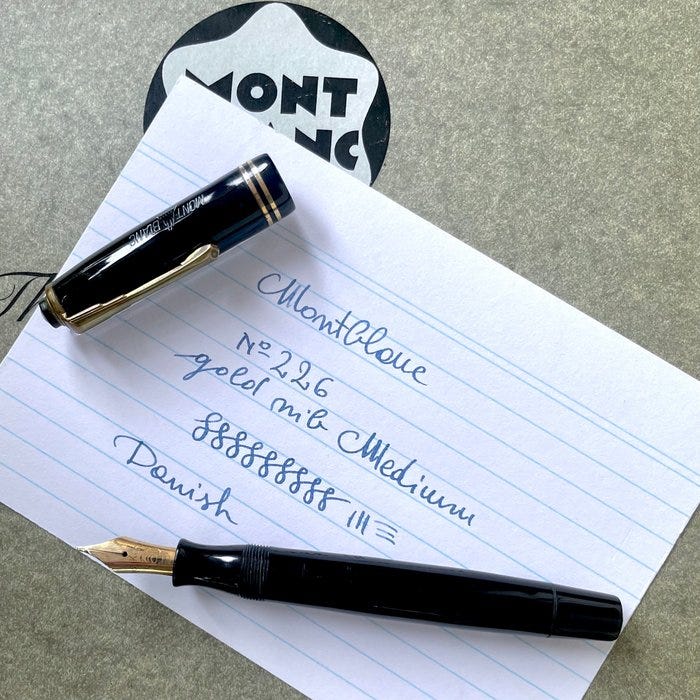 MONT
BLANC
MONTBLANC
Montblanc
Nº 226
gold nib Medium
Danish